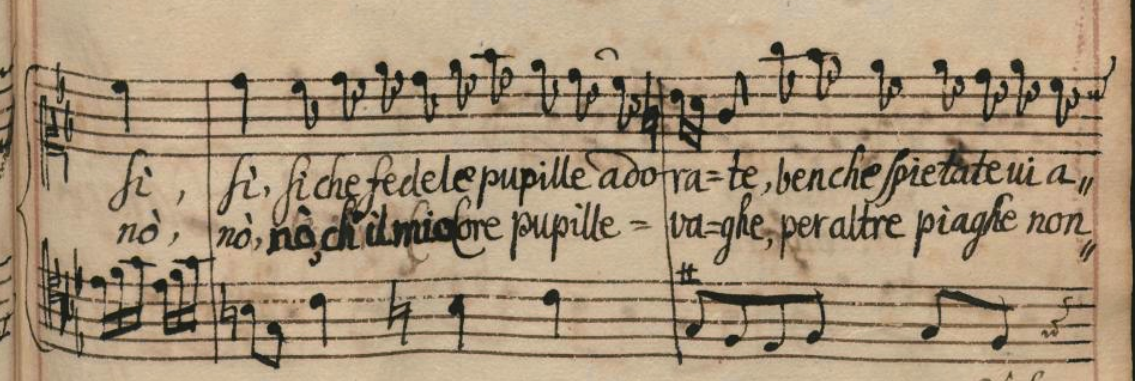 sì, sì, sì che fedele pupille adora=te, benche spietate vi a„
nò, nò, nò, ch'il mio core pupille = va=ghe, per altre piaghe non„